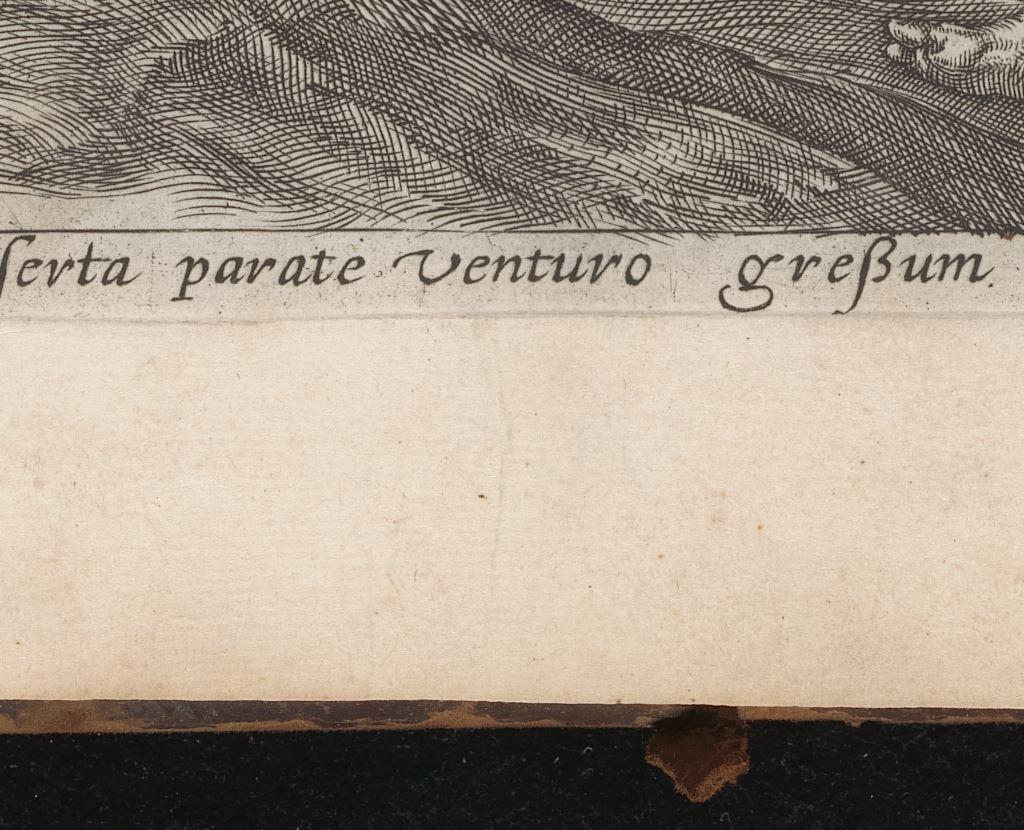 ſerta parate venturo greßum.